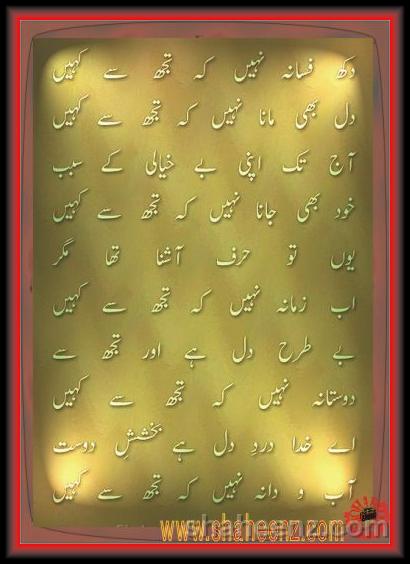 دکھ فسانہ نہیں کہ تجھ سے کہیں
دل بھی مانا نہیں کہ تجھ سے کہیں
آج تک اپنی بے خیالی کے سبب
خود بھی جانا نہیں کہ تجھ سے کہیں
یوں تو حرف آشنا تھا مگر
اب زمانہ نہیں کہ تجھ سے کہیں
بے طرح دل ہے اور تجھ سے
دوستانہ نہیں کہ تجھ سے کہیں
اے خدا دردِ دل ہے بخشش دوست
آب و دانہ نہیں کہ تجھ سے کہیں
www.shaheenz.com